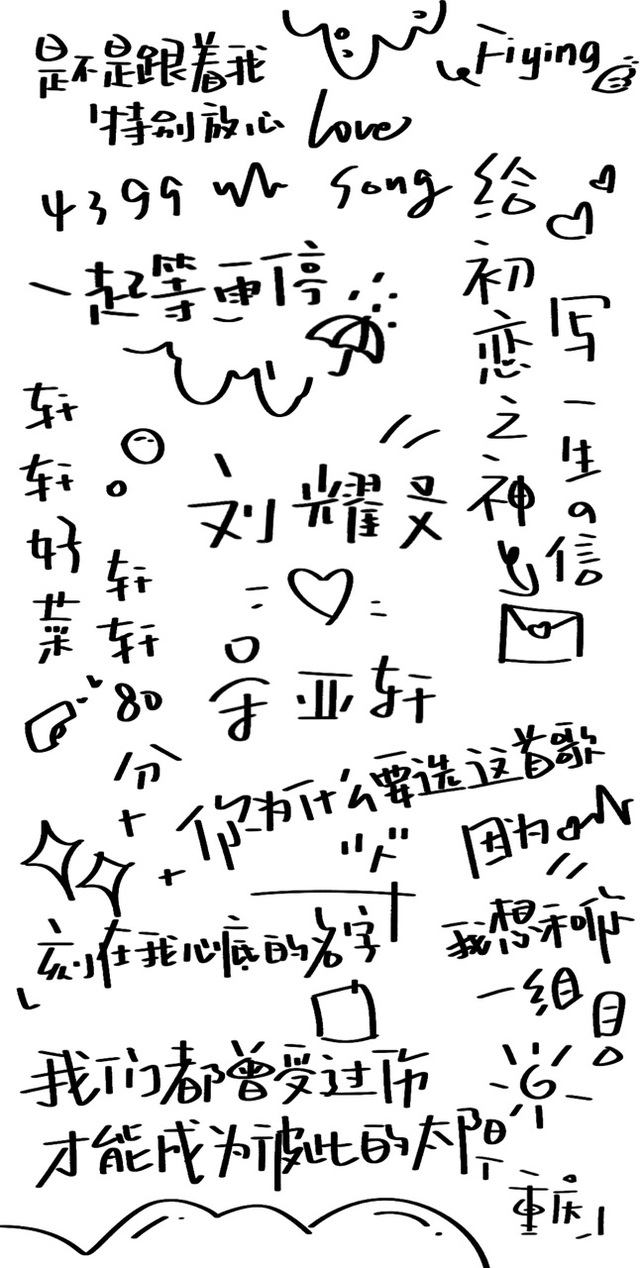 是不是跟着我
Fiying
特别放心 love
4399 song
给初恋之神
写一生の信
一起等雨停
轩轩好菜
轩轩
80分
刘耀文
宋亚轩
你为什么要选这首歌
因为
我想和你
一组
刻在我心底的名字
我们都曾受过伤
才能成为彼此的太阳
重庆